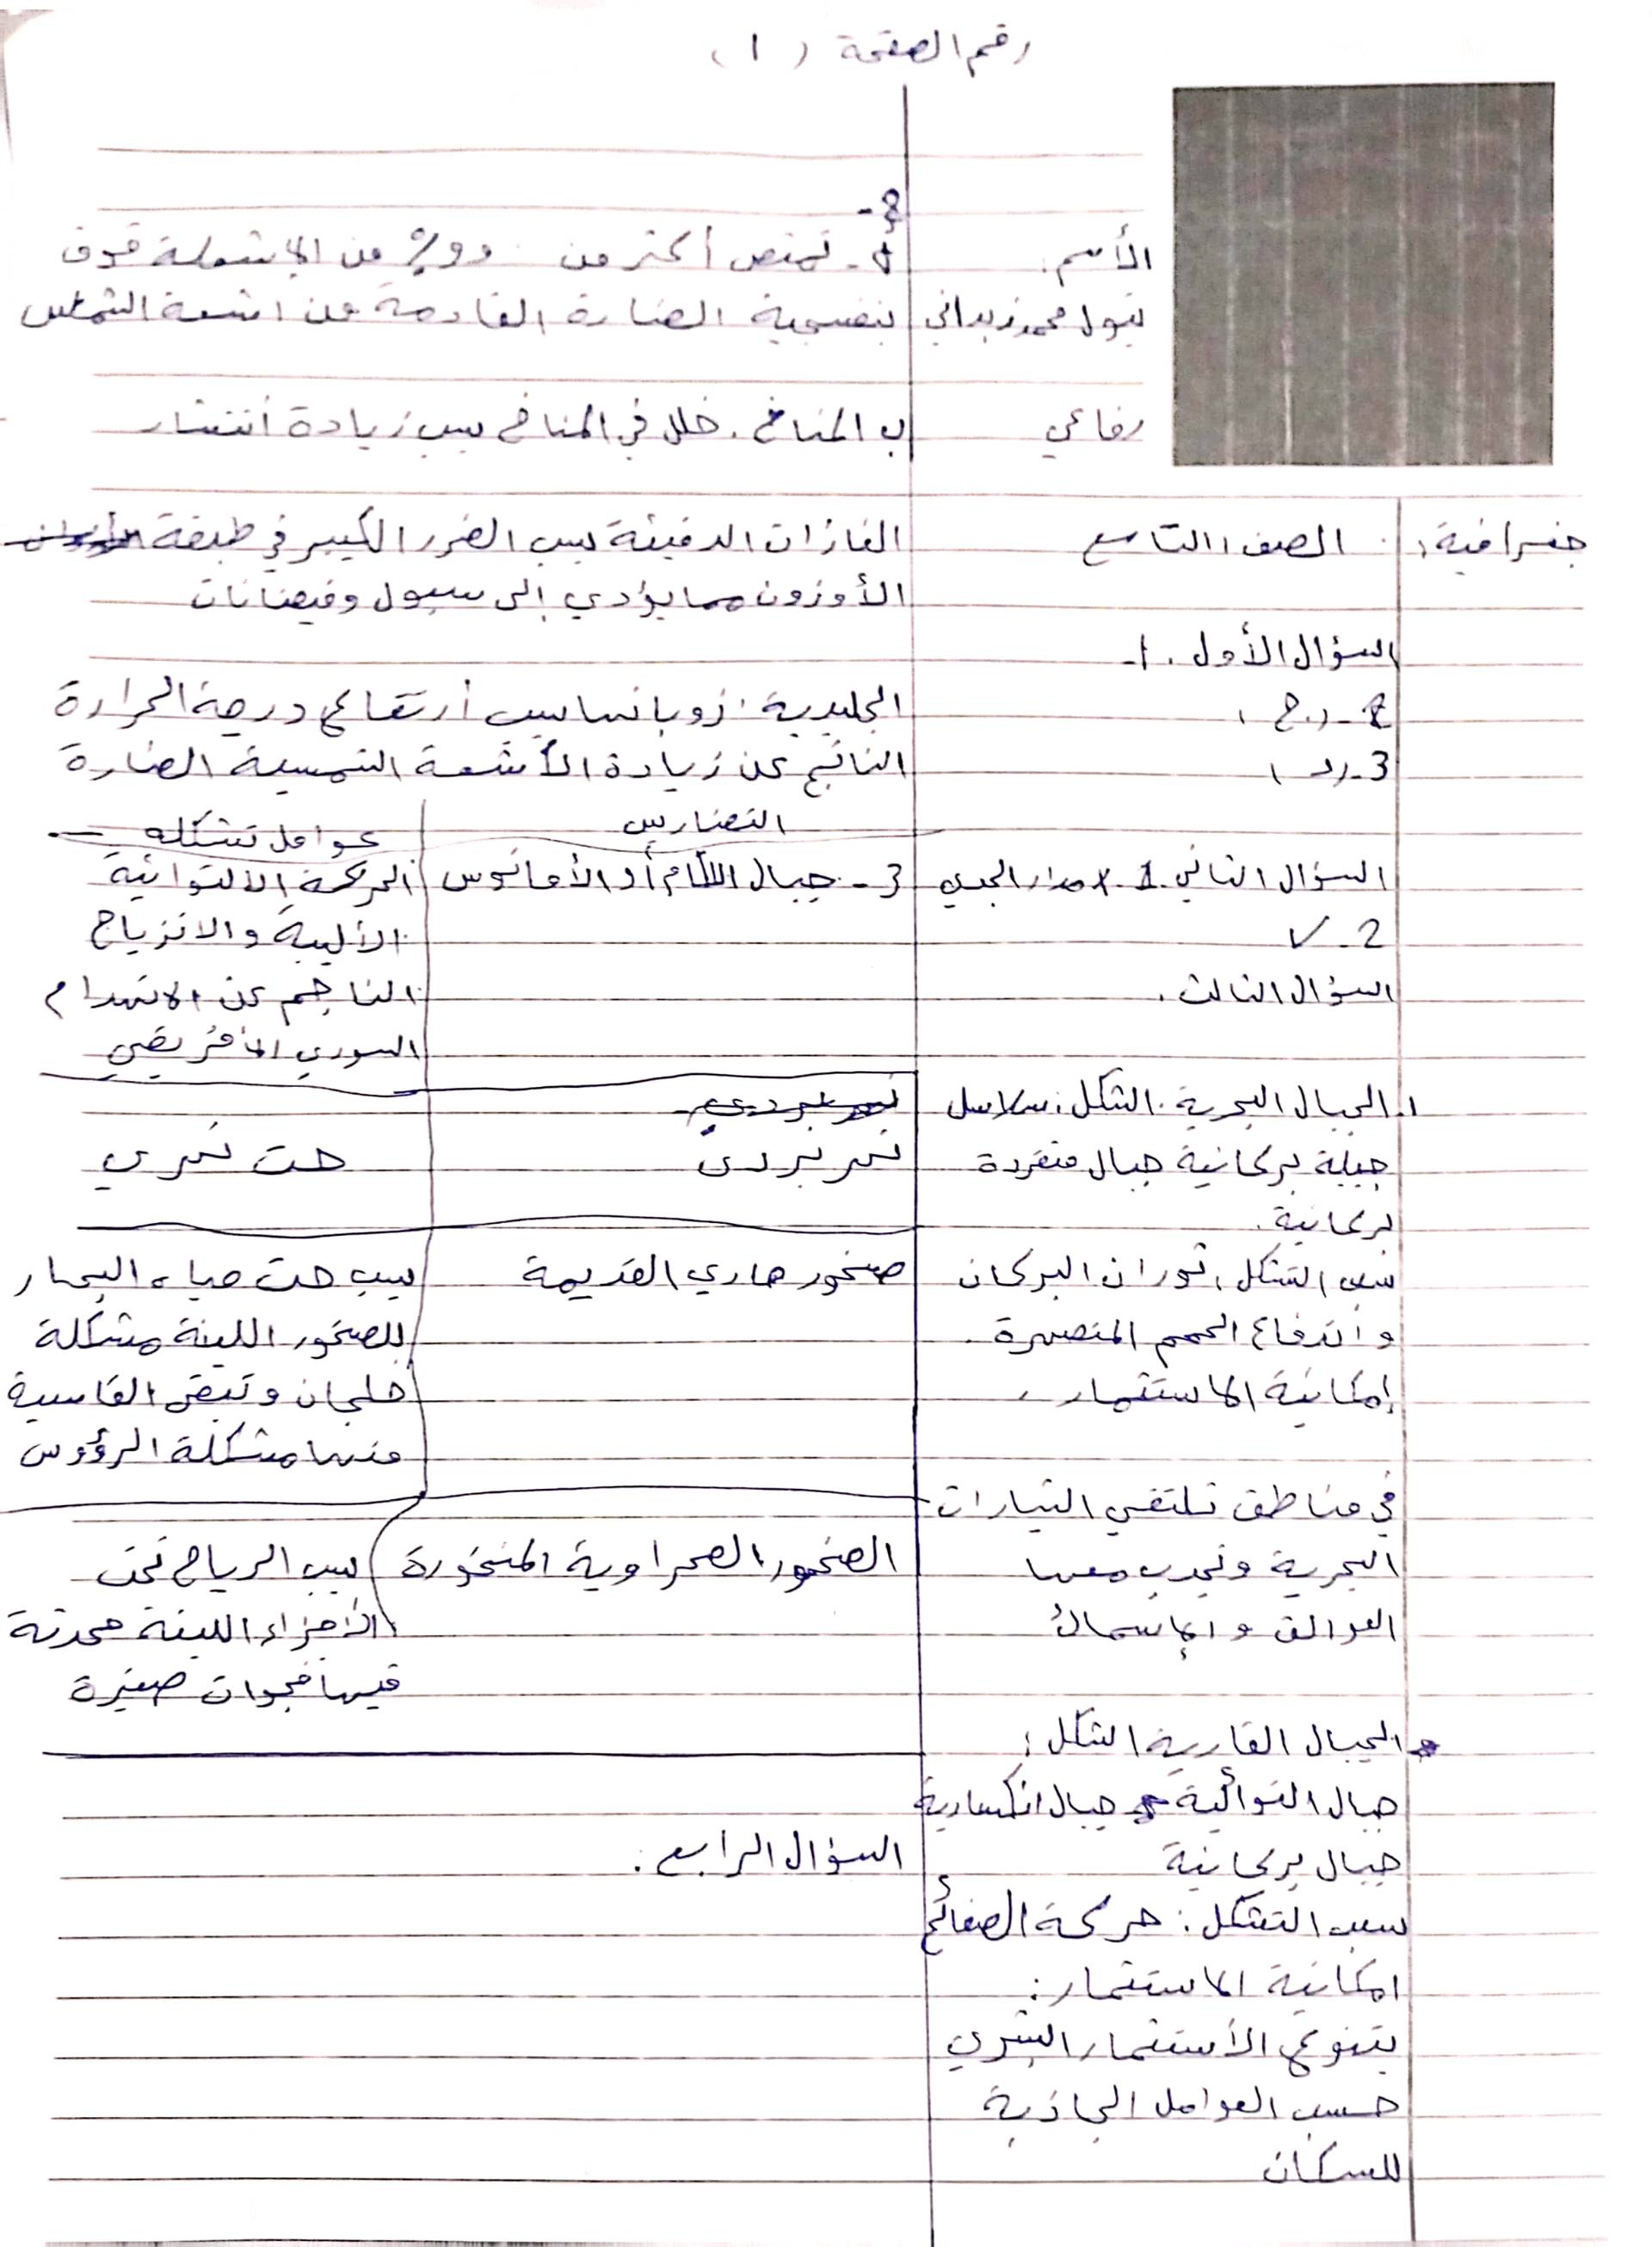 رقم الصفحة (١)
الأسم:
بتول محمد زبداني
رفاعي
جغرافية: الصف: التاسع
السؤال الأول. 1-
2- (ج)
3- (د)
السؤال الثاني. 1- x مدار الجدي
2- ✓
السؤال الثالث.
1. الجبال البحرية. الشكل: سلاسل
جبلية بركانية جبال منفردة
بركانية.
سبب التشكل: ثوران البركان
و اندفاع الحمم المنصهرة
إمكانية الاستثمار:
في مناطق تلتقي التيارات
البحرية وتجدب معها
العوالق و الإسماك
الجبال القارية الشكل:
جبال التوائية جبال انكسارية
جبال بركانية
سبب التشكل: حركة الصفائح
امكانية الاستثمار:
يتنوع الأستثمار البشري
حسب العوامل الجاذبة
للسكان
2-
أ- تمتص أكثر من ٩٩% من الاشعة فوق
بنفسجية الضارة القادمة من اشعة الشمس
ب المناخ. خلل في المناخ بسبب زيادة أنتشار
الغازات الدفيئة بسبب الضرر الكبير في طبقة
الأوزون مما يؤدي إلى سيول وفيضانات
الجليدية: ذوبانها بسبب أرتفاع درجة الحرارة
الناتج عن زيادة الأشعة الشمسية الضارة
التضاريس | عوامل تشكله
3- جبال اللكام أو الأمانوس | الحركة الالتوائية
الألبية و الانزياح
الناجم عن الانهدام
السوري الأفريقي
نهر بردى | حت نهري
صخور هاري القديمة | بسبب حت مياه البحار
للصخور اللينة مشكلة
خلجان وتبقى القاسية
منها مشكلة الرؤوس
الصخور الصحراوية المنخورة | بسبب الرياح تحت
الأجزاء اللينة محدثة
فيها فجوات صغيرة
السؤال الرابع: